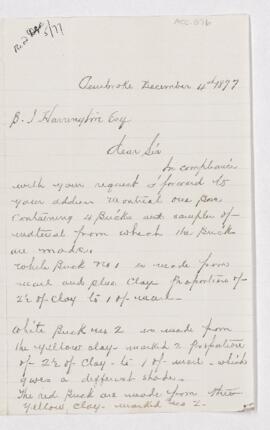 ACC.076
5/77
Pembroke December 4th 1877
B. J Harrington Esq
Dear Sir
In compliance
with your request I forward to
your address Montreal one Box
Containing 4 Bricks and samples of
material from which the Bricks
are made.
White Brick No 1 is made from
marl and blue Clay. Proportion of
2½ of Clay to 1 of marl.
White Brick No 2 is made from
the Yellow clay marked 2 Proportion
of 2½ of Clay to 1 of marl. which
gives a different shade.
The red Brick are made from
Yellow Clay marked No 2